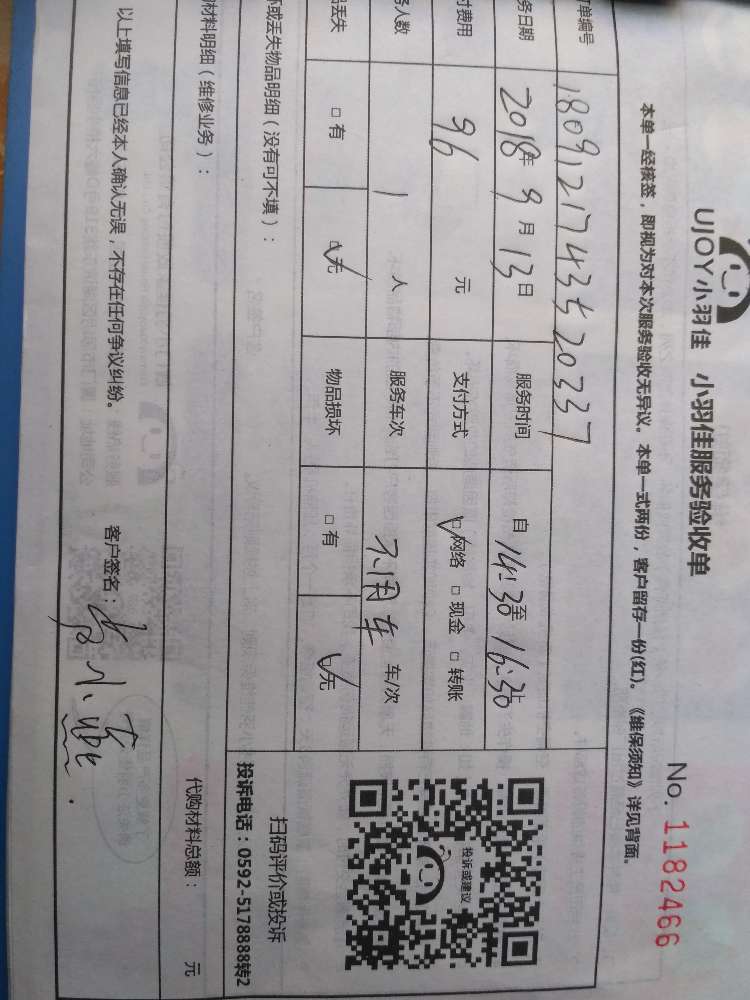 UJOY小羽佳 小羽佳服务验收单
No. 1182466
本单一经核签，即视为对本次服务验收无异议。本单一式两份，客户留存一份(红)。《维保须知》详见背面。
单编号 1809121743520337
务日期 2018年9月13日 服务时间 自14:30至16:30止
付费用 96 元 支付方式 ☑网络 □现金 □转账
务人数 1 人 服务车次 不用车 车/次
品丢失 □有 ☑无 物品损坏 □有 ☑无
投诉或建议
扫码评价或投诉
投诉电话：0592-5178888转2
坏或丢失物品明细（没有可不填）：
材料明细（维修业务）：
代购材料总额： 元
以上填写信息已经本人确认无误，不存在任何争议纠纷。 客户签名：